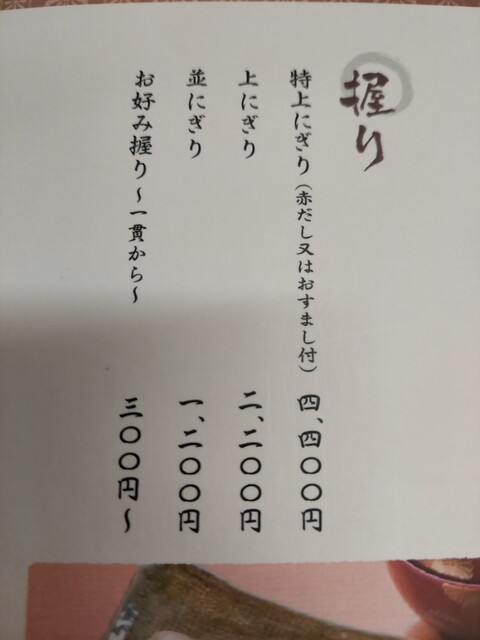 握り
特上にぎり（赤だし又はおすまし付） 四、四〇〇円
上にぎり 二、二〇〇円
並にぎり 一、二〇〇円
お好み握り～一貫から～ 三〇〇円～